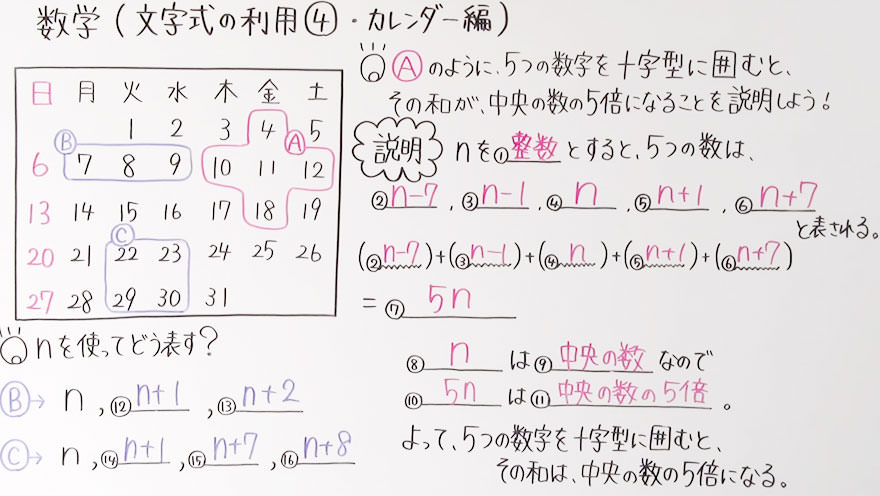 数学(文字式の利用④・カレンダー編)
日 月 火 水 木 金 土
1 2 3 4 5
6 7 8 9 10 11 12
13 14 15 16 17 18 19
20 21 22 23 24 25 26
27 28 29 30 31
Ⓑ
Ⓐ
Ⓒ
nを使ってどう表す?
Ⓑ→ n , ⑫n+1 , ⑬n+2
Ⓒ→ n , ⑭n+1 , ⑮n+7 , ⑯n+8
Ⓐのように、5つの数字を十字型に囲むと、
その和が、中央の数の5倍になることを説明しよう!
説明 nを①整数とすると、5つの数は、
②n-7 , ③n-1 , ④n , ⑤n+1 , ⑥n+7
と表される。
(②n-7)+(③n-1)+(④n)+(⑤n+1)+(⑥n+7)
= ⑦5n
⑧n は⑨中央の数 なので
⑩5n は⑪中央の数の5倍 。
よって、5つの数字を十字型に囲むと、
その和は、中央の数の5倍になる。